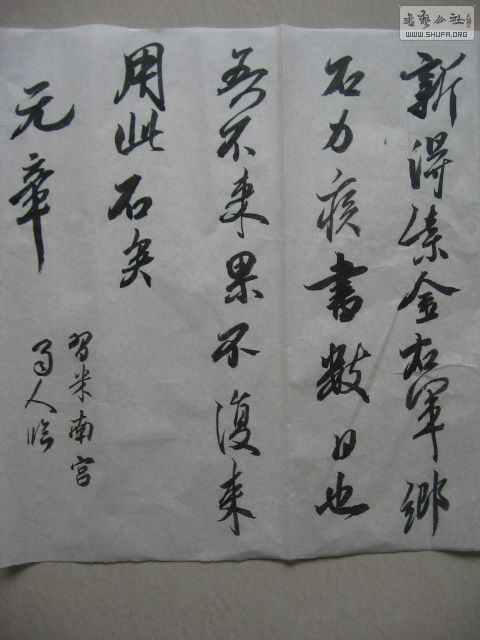 書藝公社
WWW.SHUFA.ORG
新得紫金右軍鄉
石力疾書數日也
吾不来果不復来
用此石矣
元章
習米南宫
人临